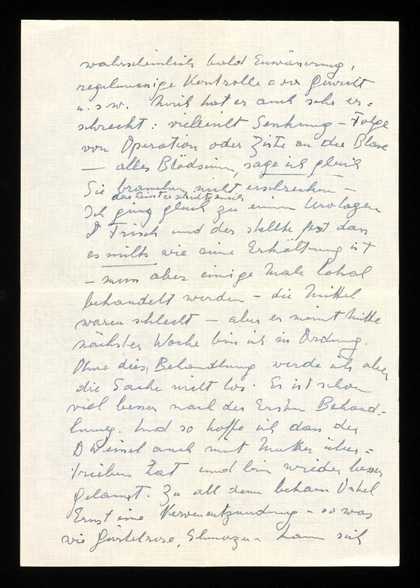 wahrscheinlich bald Erwärmung,
regelmässige Kontrolle
u.s.w. Mich hat er auch sehr er-
schreckt: vielleicht Senkung – Folge
von Operation oder Ziste an der Blase
– alles Blödsinn, sage ich gleich
Sie brauchen nicht erschrecken –
Ich ging gleich zu einem Urologen
D Frisch und der stellte fest dass
es nichts wie eine Erkältung ist
– muss aber einige Male lokal
behandelt werden – die Mittel
waren schlecht – aber er meint Mitte
nächster Woche bin ich in Ordnung.
Ohne diese Behandlung werde ich aber
die Sache nicht los. Es ist schon
viel besser nach der Ersten Behand-
lung. Und so hoffe ich dass der
D auch mit Mutter über-
trieben hat und bin wieder besser
gelaunt. Zu all dem bekam Onkel
Ernst eine Nervenentzündung – so was
wie Gürtelrose, Schmerzen – kann sich